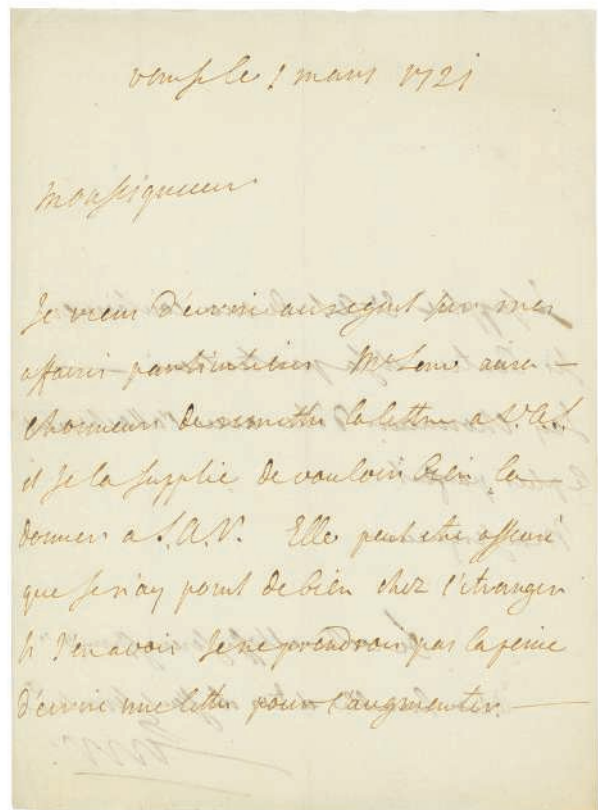 venise le 1 mars 1721
Monseigneur
Je viens d'ecrire au regent sur mes
affaires particulieres Mr aura —
l'honneur de remettre la lettre a V.A.S.
et Je la supplie de vouloir bien la —
donner a S.A.R. Elle peut etre assuré
que Je n'ay point de bien chez l'etranger
si J'en avois Je ne prendrois pas la peine
d'ecrire une lettre pour l'augmenter. —